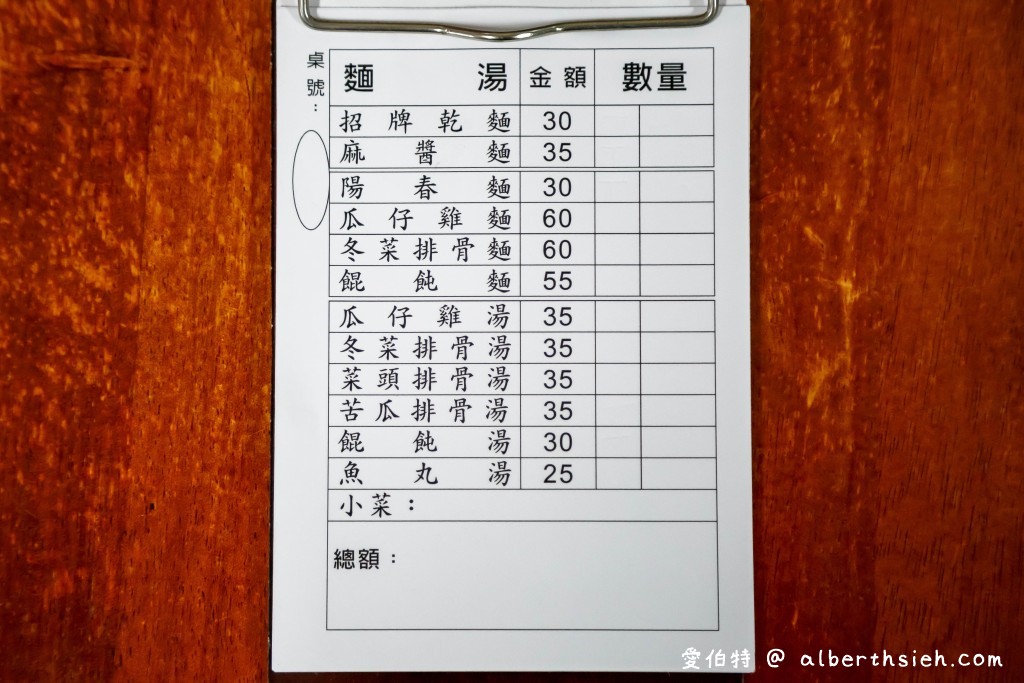 桌號：
麵湯 金額 數量
招牌乾麵 30
麻醬麵 35
陽春麵 30
瓜仔雞麵 60
冬菜排骨麵 60
餛飩麵 55
瓜仔雞湯 35
冬菜排骨湯 35
菜頭排骨湯 35
苦瓜排骨湯 35
餛飩湯 30
魚丸湯 25
小菜：
總額：
愛伯特 @ alberthsieh.com